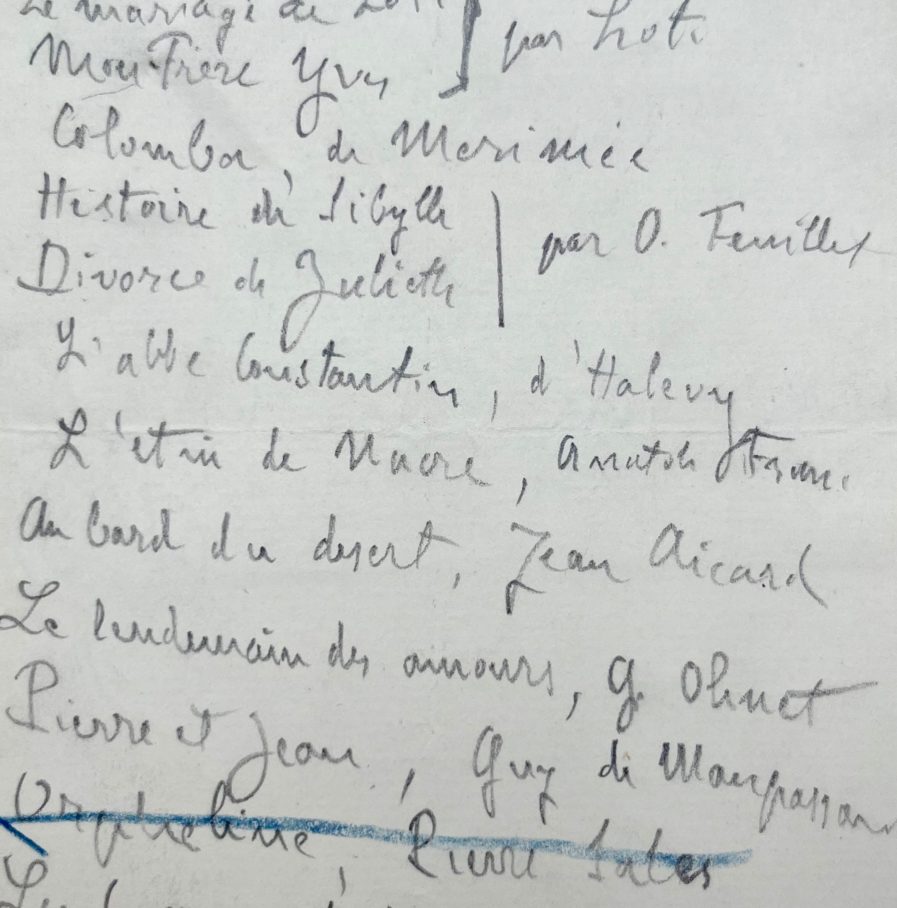 Le mariage de Loti
Mon Frère Yves } par Loti
Colomba, de Merimée
Histoire de Sibylle
Divorce de Juliette | par O. Feuillet
L'abbe Constantin, d'Halevy
L'etui de Nacre, Anatole France
Au bord du desert, Jean Aicard
Le lendemain des amours, G. Ohnet
Pierre et Jean, Guy de Maupassan
Orpheline, Pierre Sales